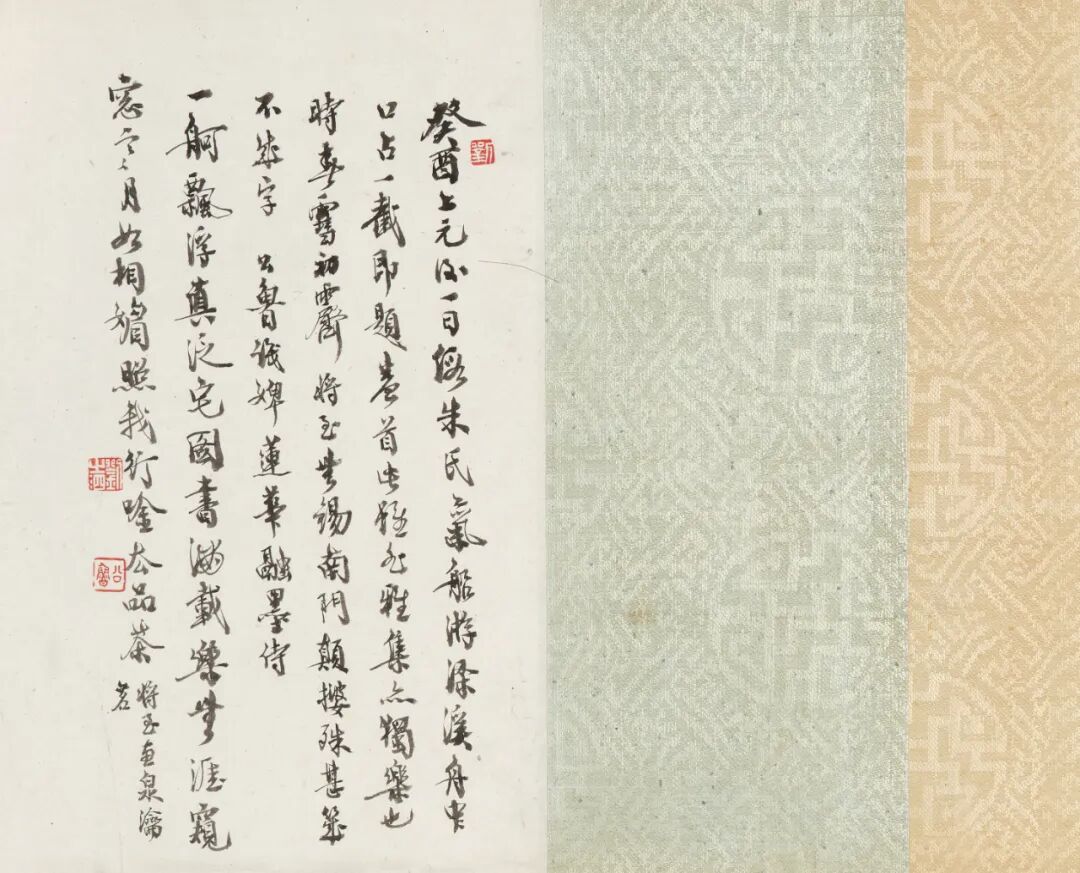 癸酉上元后一日假朱氏氣船游梁溪舟中
口占一截即題卷首此雖非雅集亦獨樂也
時春雪初霽將至無錫南門顛摟殊甚幾
不成字 公魯識婢蓮華融墨侍
一舸飄浮真泛宅圖書滿載樂無涯窺
窓月如相媚照我行吟品茶 將至惠泉瀹
茗
公魯